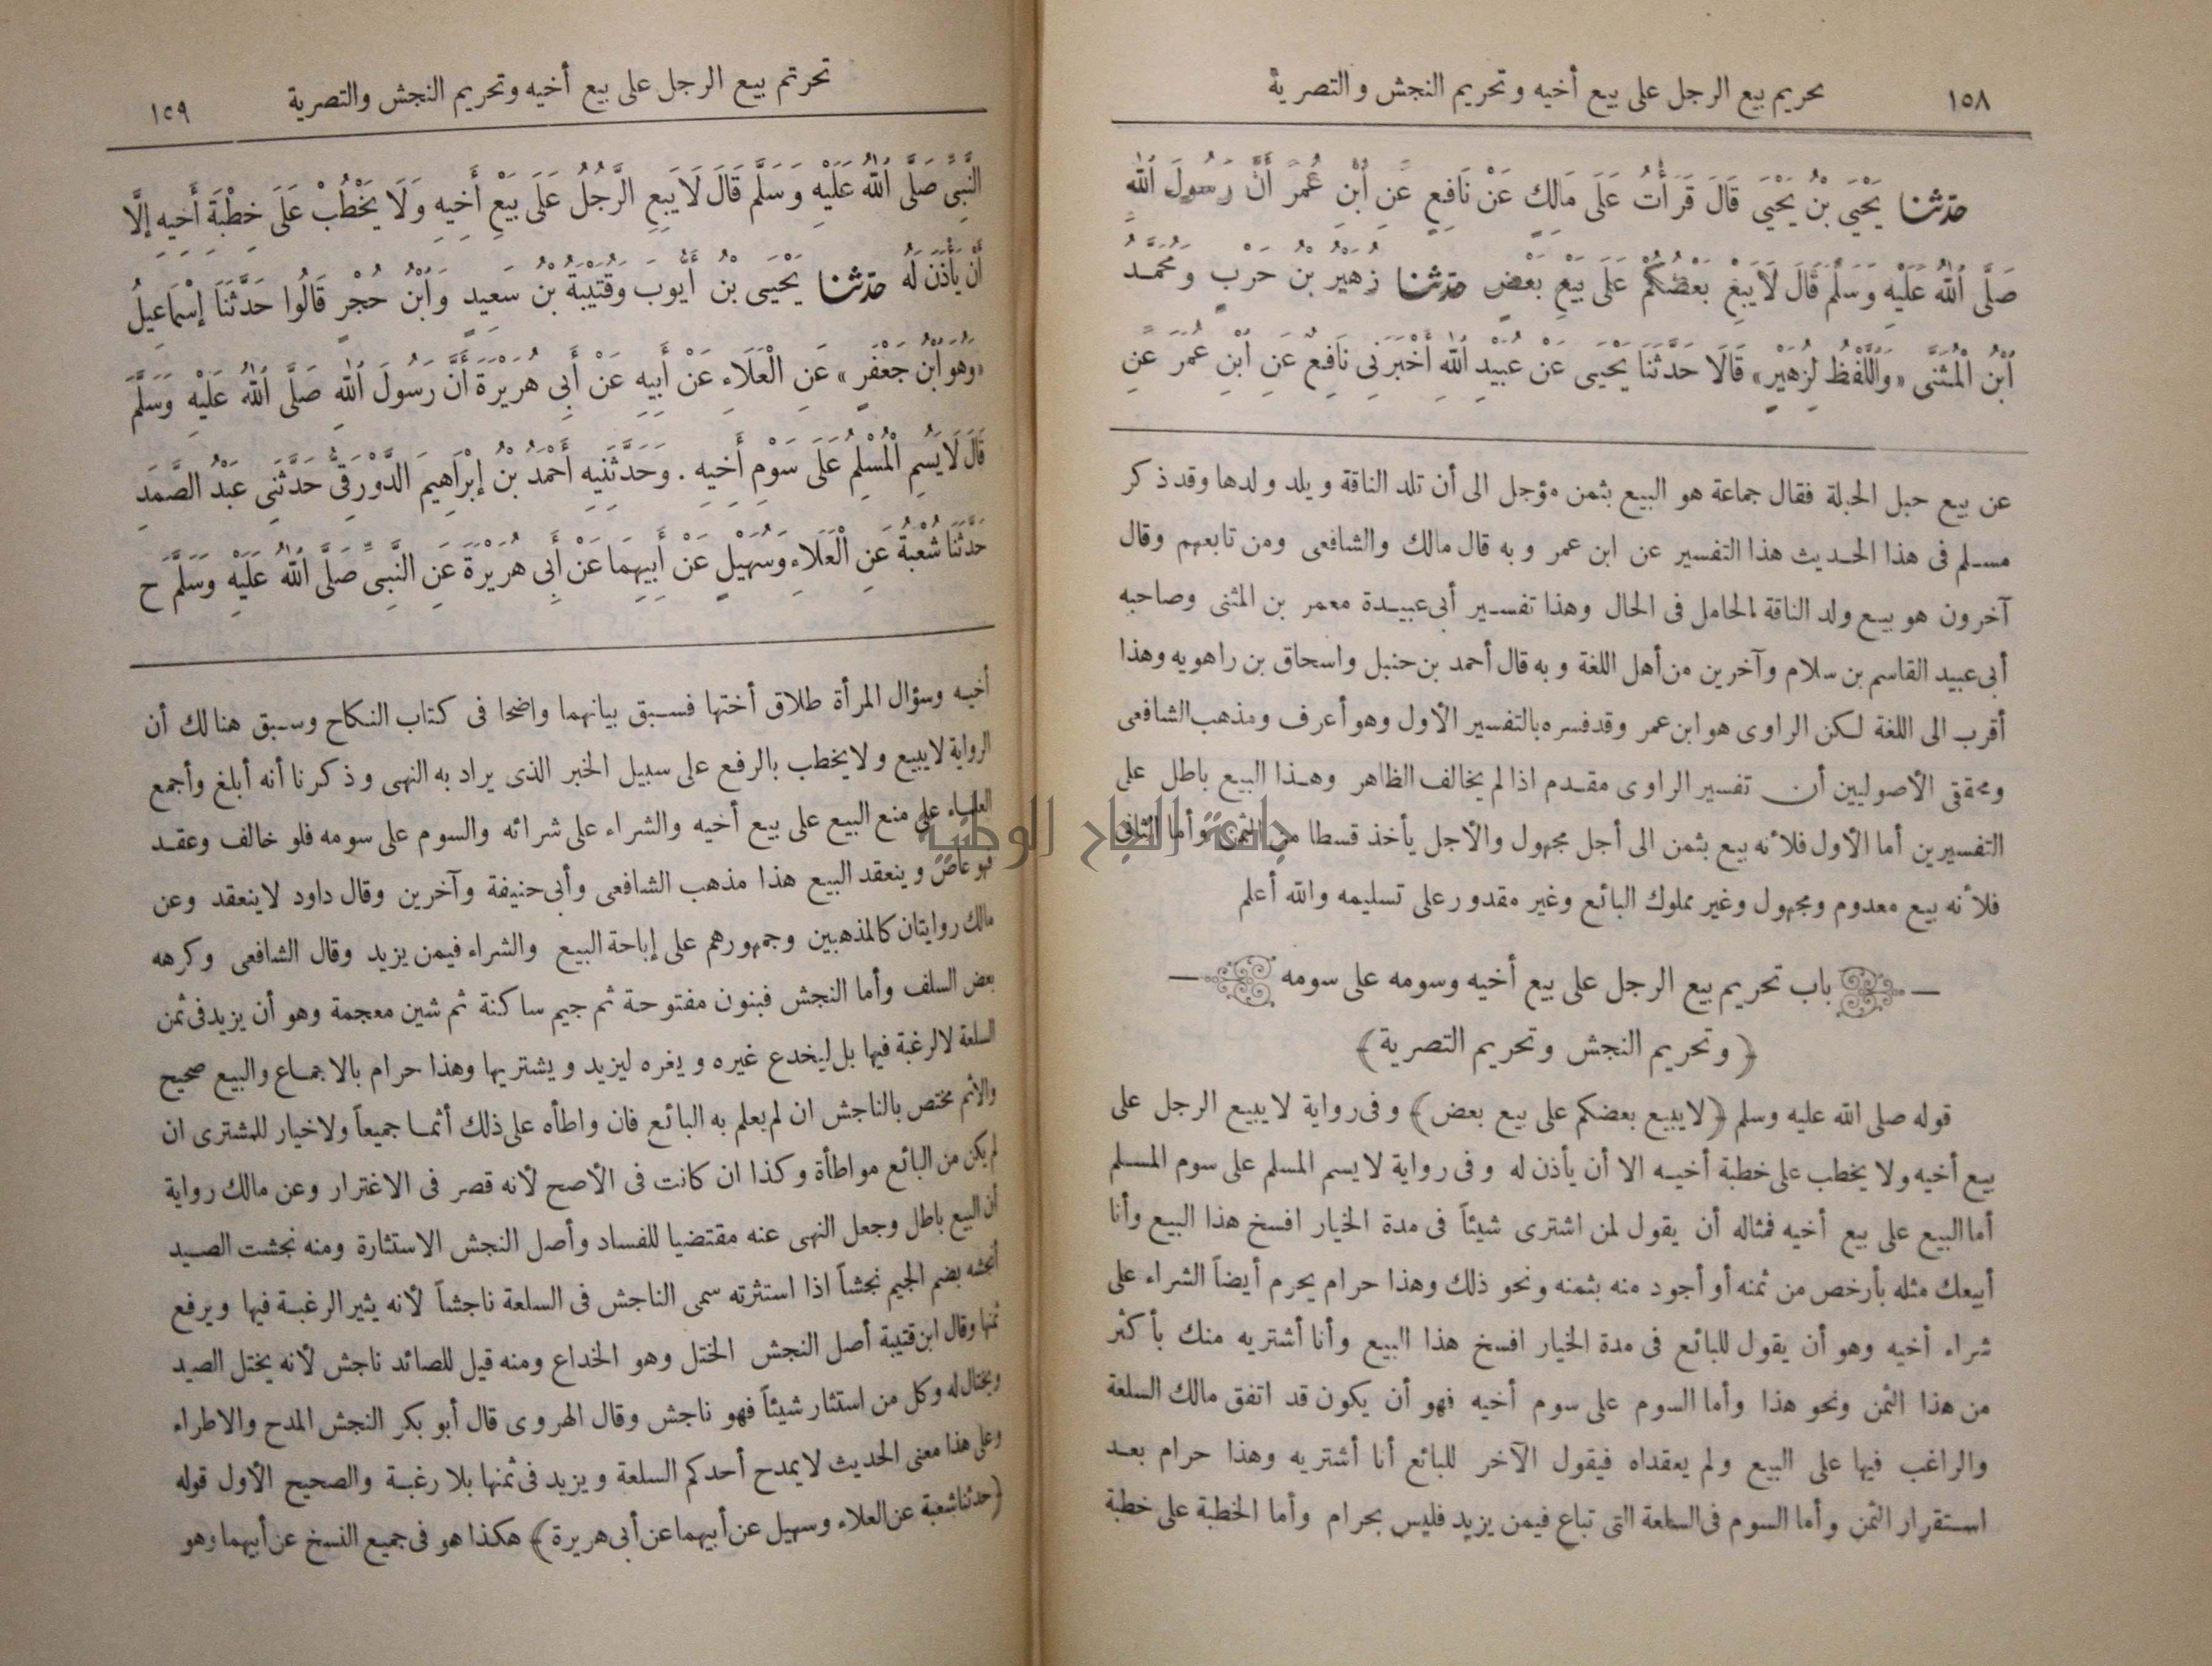 ١٥٨ تحريم بيع الرجل على بيع أخيه وتحريم النجش والتصرية
حَدَّثَنَا يَحْيَى بْنُ يَحْيَى قَالَ قَرَأْتُ عَلَى مَالِكٍ عَنْ نَافِعٍ عَنِ ابْنِ عُمَرَ أَنَّ رَسُولَ اللهِ
صَلَّى اللهُ عَلَيْهِ وَسَلَّمَ قَالَ لَا يَبِعْ بَعْضُكُمْ عَلَى بَيْعِ بَعْضٍ حَدَّثَنَا زُهَيْرُ بْنُ حَرْبٍ وَمُحَمَّدُ
ابْنُ الْمُثَنَّى «وَاللَّفْظُ لِزُهَيْرٍ» قَالَا حَدَّثَنَا يَحْيَى عَنْ عُبَيْدِ اللهِ أَخْبَرَنِى نَافِعٌ عَنِ ابْنِ عُمَرَ عَنِ
عن بيع حبل الحبلة فقال جماعة هو البيع بثمن مؤجل الى أن تلد الناقة ويلد ولدها وقد ذكر
مسلم فى هذا الحديث هذا التفسير عن ابن عمر وبه قال مالك والشافعى ومن تابعهم وقال
آخرون هو بيع ولد الناقة الحامل فى الحال وهذا تفسير أبى عبيدة معمر بن المثنى وصاحبه
أبى عبيد القاسم بن سلام وآخرين من أهل اللغة وبه قال أحمد بن حنبل واسحاق بن راهويه وهذا
أقرب الى اللغة لكن الراوى هو ابن عمر وقد فسره بالتفسير الأول وهو أعرف ومذهب الشافعى
ومحققى الأصوليين أن تفسير الراوى مقدم اذا لم يخالف الظاهر وهذا البيع باطل على
التفسيرين أما الأول فلأنه بيع بثمن الى أجل مجهول والأجل يأخذ قسطا من الثمن وأما الثانى
فلأنه بيع معدوم ومجهول وغير مملوك البائع وغير مقدور على تسليمه والله أعلم
باب تحريم بيع الرجل على بيع أخيه وسومه على سومه
﴿وتحريم النجش وتحريم التصرية﴾
قوله صلى الله عليه وسلم ﴿لا يبيع بعضكم على بيع بعض﴾ وفى رواية لا يبيع الرجل على
بيع أخيه ولا يخطب على خطبة أخيه الا أن يأذن له وفى رواية لا يسم المسلم على سوم المسلم
أما البيع على بيع أخيه فمثاله أن يقول لمن اشترى شيئاً فى مدة الخيار افسخ هذا البيع وأنا
أبيعك مثله بأرخص من ثمنه أو أجود منه بثمنه ونحو ذلك وهذا حرام يحرم أيضاً الشراء على
شراء أخيه وهو أن يقول للبائع فى مدة الخيار افسخ هذا البيع وأنا أشتريه منك بأكثر
من هذا الثمن ونحو هذا وأما السوم على سوم أخيه فهو أن يكون قد اتفق مالك السلعة
والراغب فيها على البيع ولم يعقداه فيقول الآخر للبائع أنا أشتريه وهذا حرام بعد
استقرار الثمن وأما السوم فى السلعة التى تباع فيمن يزيد فليس بحرام وأما الخطبة على خطبة
تحريم بيع الرجل على بيع أخيه وتحريم النجش والتصرية ١٥٩
النَّبِىِّ صَلَّى اللهُ عَلَيْهِ وَسَلَّمَ قَالَ لَا يَبِعِ الرَّجُلُ عَلَى بَيْعِ أَخِيهِ وَلَا يَخْطُبْ عَلَى خِطْبَةِ أَخِيهِ إِلَّا
أَنْ يَأْذَنَ لَهُ حَدَّثَنَا يَحْيَى بْنُ أَيُّوبَ وَقُتَيْبَةُ بْنُ سَعِيدٍ وَابْنُ حُجْرٍ قَالُوا حَدَّثَنَا إِسْمَاعِيلُ
«وَهُوَ ابْنُ جَعْفَرٍ» عَنِ الْعَلَاءِ عَنْ أَبِيهِ عَنْ أَبِى هُرَيْرَةَ أَنَّ رَسُولَ اللهِ صَلَّى اللهُ عَلَيْهِ وَسَلَّمَ
قَالَ لَا يَسُمِ الْمُسْلِمُ عَلَى سَوْمِ أَخِيهِ . وَحَدَّثَنِيهِ أَحْمَدُ بْنُ إِبْرَاهِيمَ الدَّوْرَقِىُّ حَدَّثَنِى عَبْدُ الصَّمَدِ
حَدَّثَنَا شُعْبَةُ عَنِ الْعَلَاءِ وَسُهَيْلٍ عَنْ أَبِيهِمَا عَنْ أَبِى هُرَيْرَةَ عَنِ النَّبِىِّ صَلَّى اللهُ عَلَيْهِ وَسَلَّمَ ح
أخيه وسؤال المرأة طلاق أختها فسبق بيانهما واضحا فى كتاب النكاح وسبق هنالك أن
الرواية لا يبيع ولا يخطب بالرفع على سبيل الخبر الذى يراد به النهى وذكرنا أنه أبلغ وأجمع
العلماء على منع البيع على بيع أخيه والشراء على شرائه والسوم على سومه فلو خالف وعقد
فهو عاص وينعقد البيع هذا مذهب الشافعى وأبى حنيفة وآخرين وقال داود لا ينعقد وعن
مالك روايتان كالمذهبين وجمهورهم على إباحة البيع والشراء فيمن يزيد وقال الشافعى وكرهه
بعض السلف وأما النجش فبنون مفتوحة ثم جيم ساكنة ثم شين معجمة وهو أن يزيد فى ثمن
السلعة لا لرغبة فيها بل ليخدع غيره ويغره ليزيد ويشتريها وهذا حرام بالاجماع والبيع صحيح
والاثم مختص بالناجش ان لم يعلم به البائع فان واطأه على ذلك أثما جميعاً ولا خيار للمشترى ان
لم يكن من البائع مواطأة وكذا ان كانت فى الأصح لأنه قصر فى الاغترار وعن مالك رواية
أن البيع باطل وجعل النهى عنه مقتضيا للفساد وأصل النجش الاستثارة ومنه نجشت الصيد
أنجشه بضم الجيم نجشاً اذا استثرته سمى الناجش فى السلعة ناجشاً لأنه يثير الرغبة فيها ويرفع
ثمنها وقال ابن قتيبة أصل النجش الختل وهو الخداع ومنه قيل للصائد ناجش لأنه يختل الصيد
ويختال له وكل من استثار شيئاً فهو ناجش وقال الهروى قال أبو بكر النجش المدح والاطراء
وعلى هذا معنى الحديث لا يمدح أحدكم السلعة ويزيد فى ثمنها بلا رغبة والصحيح الأول قوله
﴿حدثنا شعبة عن العلاء وسهيل عن أبيهما عن أبى هريرة﴾ هكذا هو فى جميع النسخ عن أبيهما وهو
جامعة النجاح الوطنية